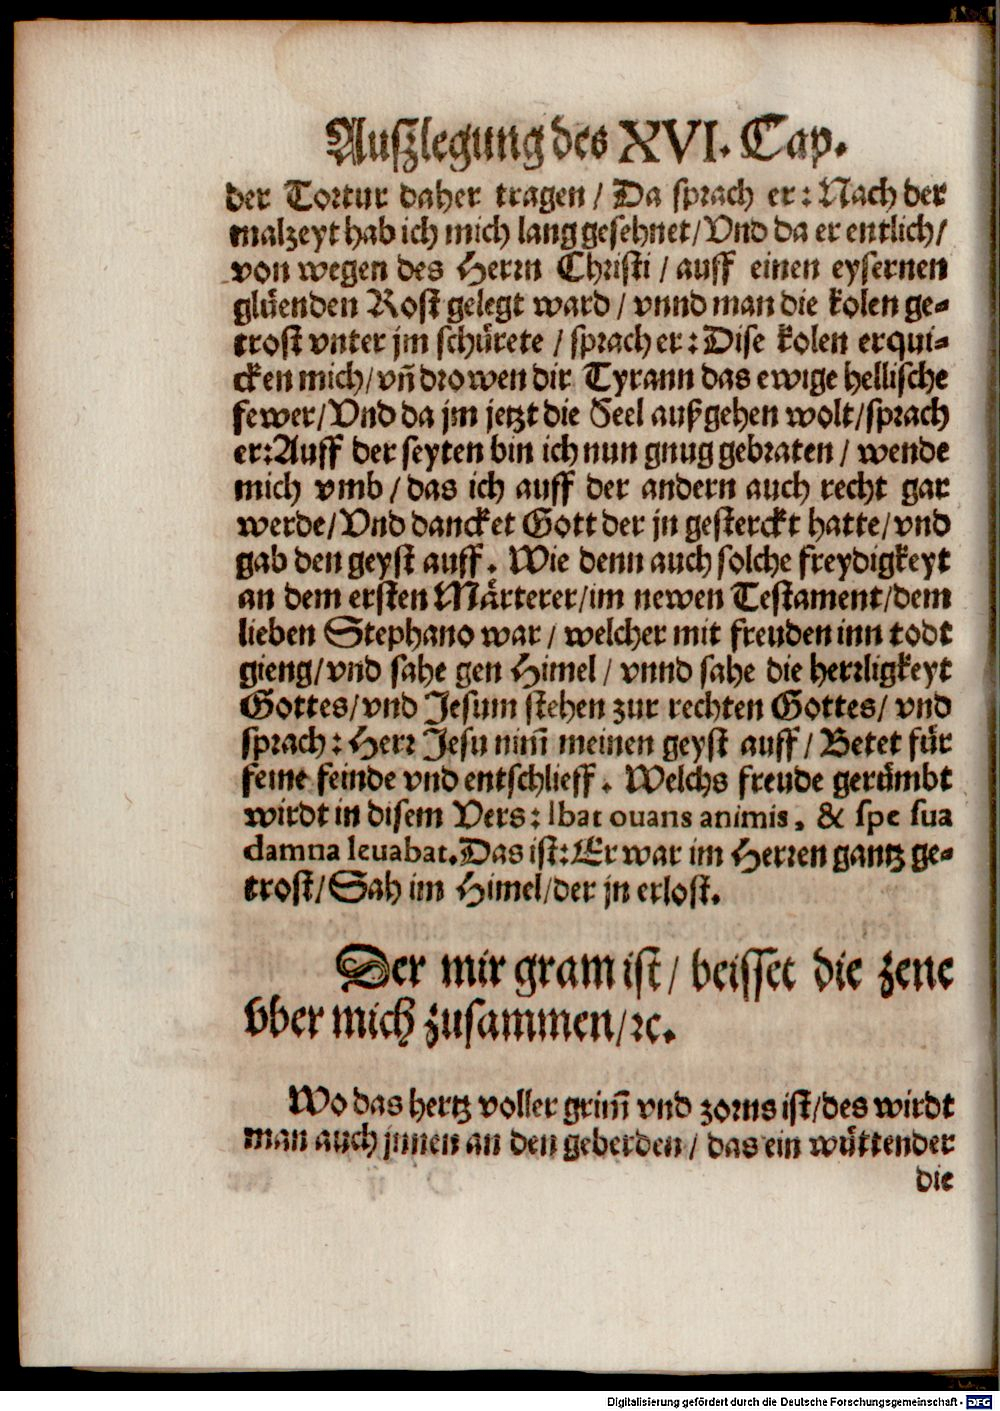 Auſzlegung des XVI. Cap.
der Tortur daher tragen / Da ſprach er: Nach der
malzeyt hab ich mich lang geſehnet / Vnd da er entlich /
von wegen des Herrn Chriſti / auff einen eyſernen
glüenden Roſt gelegt ward / vnnd man die kolen ge-
troſt vnter jm ſchürete / ſprach er: Diſe kolen erqui-
cken mich / vñ drowen dir Tyrann das ewige helliſche
fewer / Vnd da jm jetzt die Seel außgehen wolt / ſprach
er: Auff der ſeyten bin ich nun gnug gebraten / wende
mich vmb / das ich auff der andern auch recht gar
werde / Vnd dancket Gott der jn geſterckt hatte / vnd
gab den geyſt auff. Wie denn auch ſolche freydigkeyt
an dem erſten Märterer / im newen Teſtament / dem
lieben Stephano war / welcher mit freuden inn todt
gieng / vnd ſahe gen Himel / vnnd ſahe die herrligkeyt
Gottes / vnd Jeſum ſtehen zur rechten Gottes / vnd
ſprach: Herr Jeſu nim̃ meinen geyſt auff / Betet für
ſeine feinde vnd entſchlieff. Welchs freude gerümbt
wirdt in diſem Vers: Ibat ouans animis, & ſpe ſua
damna leuabat. Das iſt: Er war im Herren gantz ge-
troſt / Sah im Himel / der jn erloſt.
Der mir gram iſt / beiſſet die zene
vber mich zuſammen / ꝛc.
Wo das hertz voller grim̃ vnd zorns iſt / des wirdt
man auch jnnen an den geberden / das ein wüttender
die
Digitalisierung gefördert durch die Deutsche Forschungsgemeinschaft - DFG